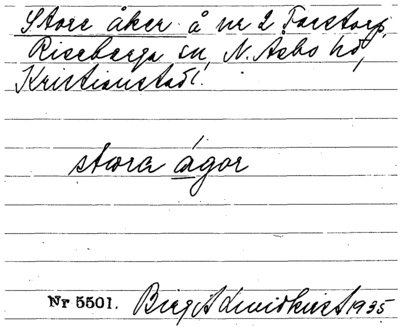 Store åker å nr 2 Farstorp,
Riseberga sn, N. Åsbo hd,
Kristianstad l.
stora ágor
Nr 5501. Birgit Lindkvist 1935